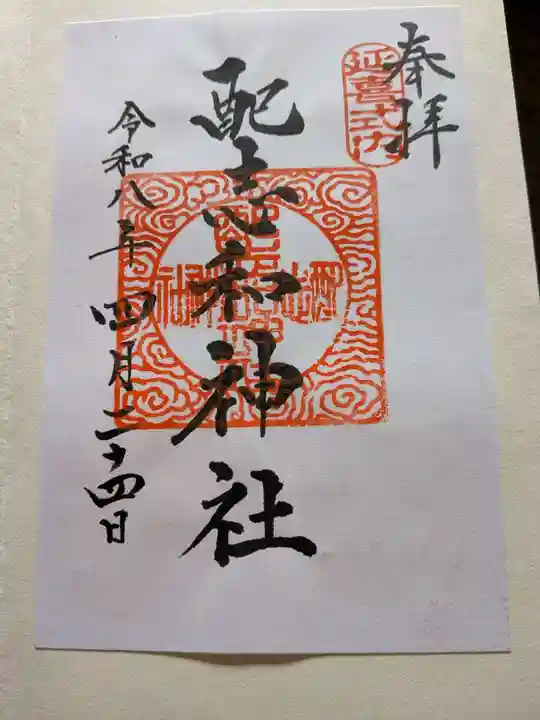 奉拝
延喜式内
配志和神社
令和八年四月二十四日